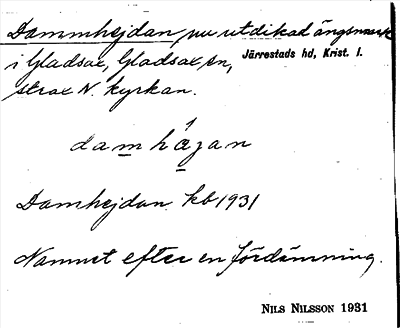 Dammhejdan, nu utdikad ängsmark
i Gladsax, Gladsax sn, Järrestads hd, Krist. l.
strax N. kyrkan.
damhàgan
Damhejdan kb 1931
Namnet efter en fördämning.
NILS NILSSON 1931